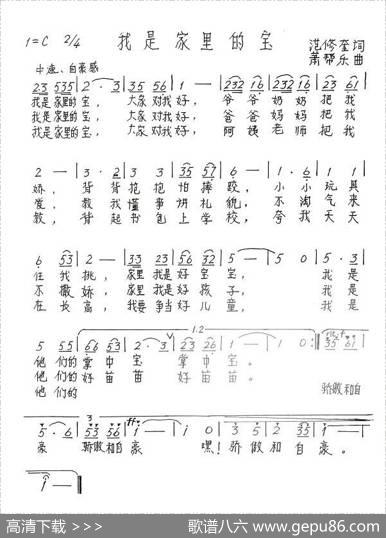 1=C 2/4 我是家里的宝 范修奎词
萧帮乐曲
中速、自豪感
23 535 | 2 · 3 | 35 56 | 1 — | 232 16 | 232 16 | 23 61 |
我是家里的宝， 大家对我好， 爷爷奶奶把我
我是家里的宝， 大家对我好， 爸爸妈妈把我
我是家里的宝， 大家对我好， 阿姨老师把我
2 — | 3 · 2 | 3 35 57 | 6 — | 1 · 6 | 1 1 |
娇， 背背抱抱怕摔跤， 小小玩具
爱， 教我懂事讲礼貌， 不淘气来
教， 背起书包上学校， 夸我天天
6 53 | 2 — | 33 23 | 56 32 | 5 — | 5 0 | 5 · 3 |
任我挑， 家里我是好宝宝， 我是
不撒娇， 家里我是好孩子， 我是
在长高， 我要争当好儿童， 我是
1.2
5 55 | 66 53 | 2 · 3 | 23 26 | 1 — | 1 0 :| 35 61 |
他们的掌中宝 掌中宝。
他们的好苗苗 好苗苗。
他们的 骄傲和自
3 ff
5 · 6 | 53 56 | 1 — | 1 0 | 3 5 | 2 35 | 1 — |
豪 骄傲和自豪 嘿！骄傲和自豪。
1 — ‖
高清下载 >>> 歌谱八六 www.gepu86.com